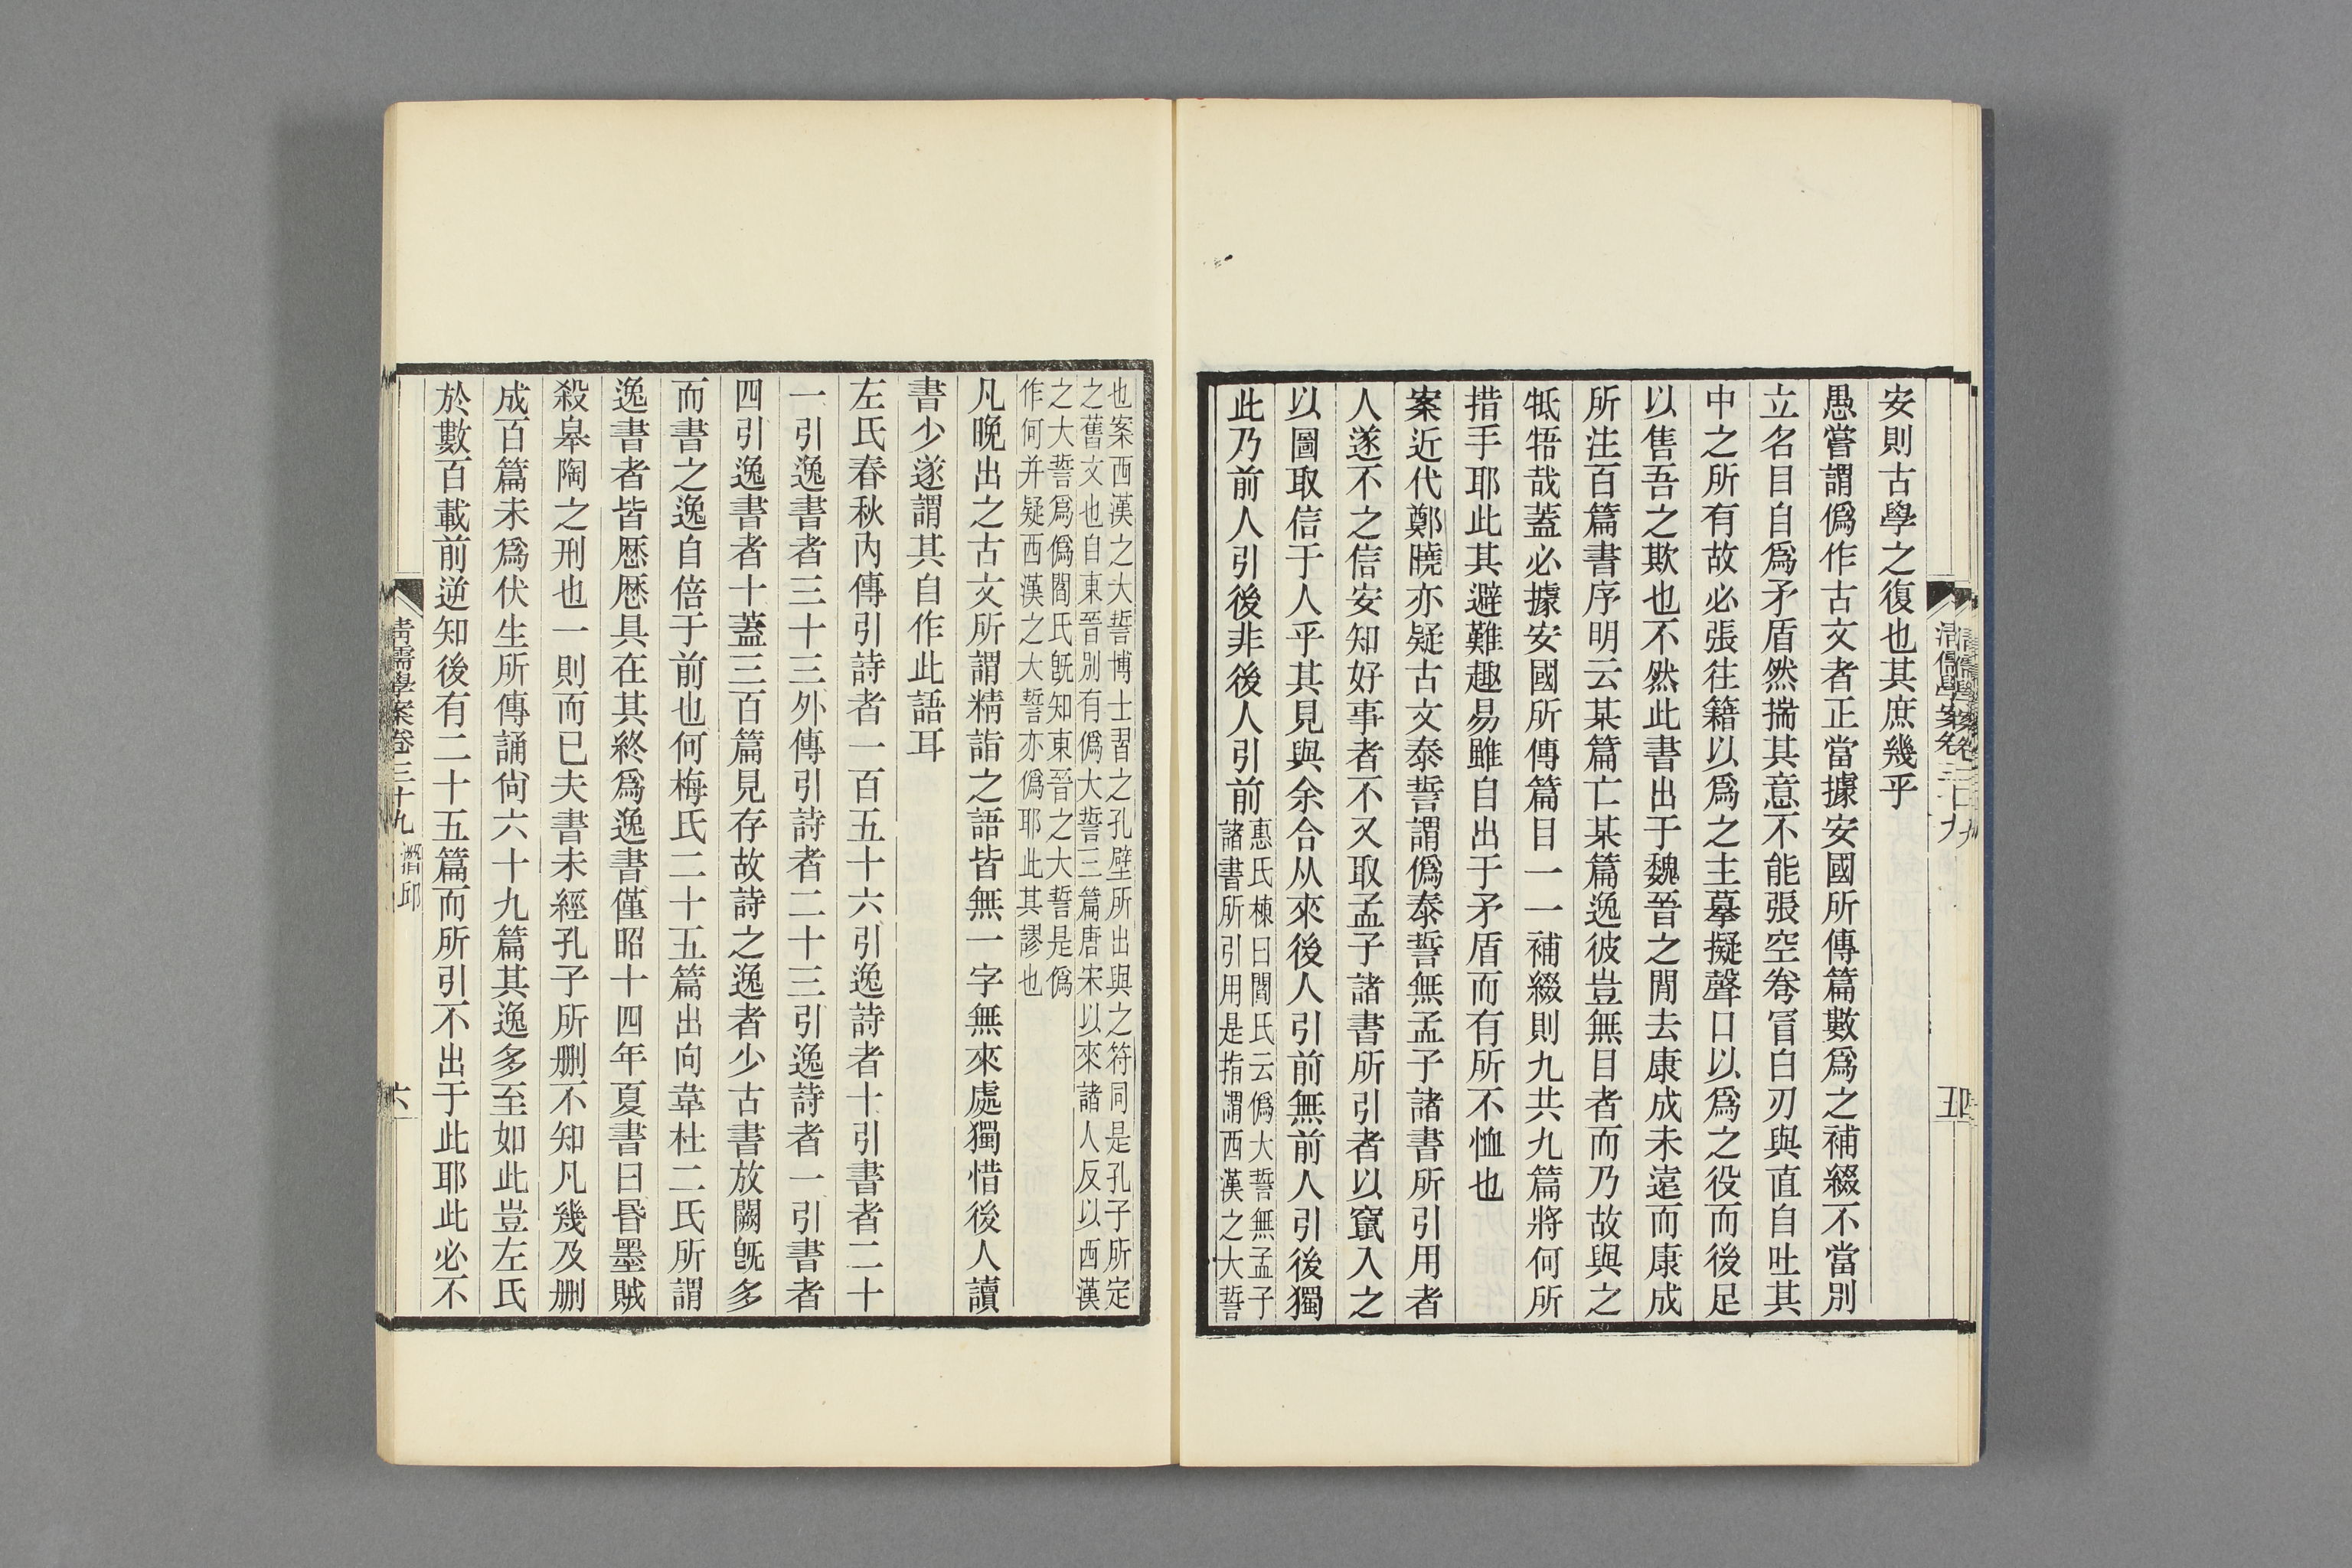 安則古學之復也其庶幾乎
愚嘗謂僞作古文者正當據安國所傳篇數爲之補綴不當別
立名目自爲矛盾然揣其意不能張空弮冒白刃與直自吐其
中之所有故必張往籍以爲之主摹擬聲口以爲之役而後足
以售吾之欺也不然此書出于魏晉之閒去康成未遠而康成
所注百篇書序明云某篇亡某篇逸彼豈無目者而乃故與之
牴牾哉蓋必據安國所傳篇目一一補綴則九共九篇將何所
措手耶此其避難趣易雖自出于矛盾而有所不恤也
案近代鄭曉亦疑古文泰誓謂僞泰誓無孟子諸書所引用者
人遂不之信安知好事者不又取孟子諸書所引者以竄入之
以圖取信于人乎其見與余合从來後人引前無前人引後獨
此乃前人引後非後人引前
惠氏棟曰閻氏云僞大誓無孟子
諸書所引用是指謂西漢之大誓
也案西漢之大誓博士習之孔壁所出與之符同是孔子所定
之舊文也自東晉別有僞大誓三篇唐宋以來諸人反以西漢
之大誓爲僞閻氏旣知東晉之大誓是僞
作何并疑西漢之大誓亦僞耶此其謬也
凡晚出之古文所謂精詣之語皆無一字無來處獨惜後人讀
書少遂謂其自作此語耳
左氏春秋內傳引詩者一百五十六引逸詩者十引書者二十
一引逸書者三十三外傳引詩者二十三引逸詩者一引書者
四引逸書者十蓋三百篇見存故詩之逸者少古書放闕旣多
而書之逸自倍于前也何梅氏二十五篇出向韋杜二氏所謂
逸書者皆歷歷具在其終爲逸書僅昭十四年夏書曰昬墨賊
殺皋陶之刑也一則而已夫書未經孔子所删不知凡幾及删
成百篇未爲伏生所傳誦尙六十九篇其逸多至如此豈左氏
於數百載前逆知後有二十五篇而所引不出于此耶此必不
清儒學案卷三十九 潛邱
六